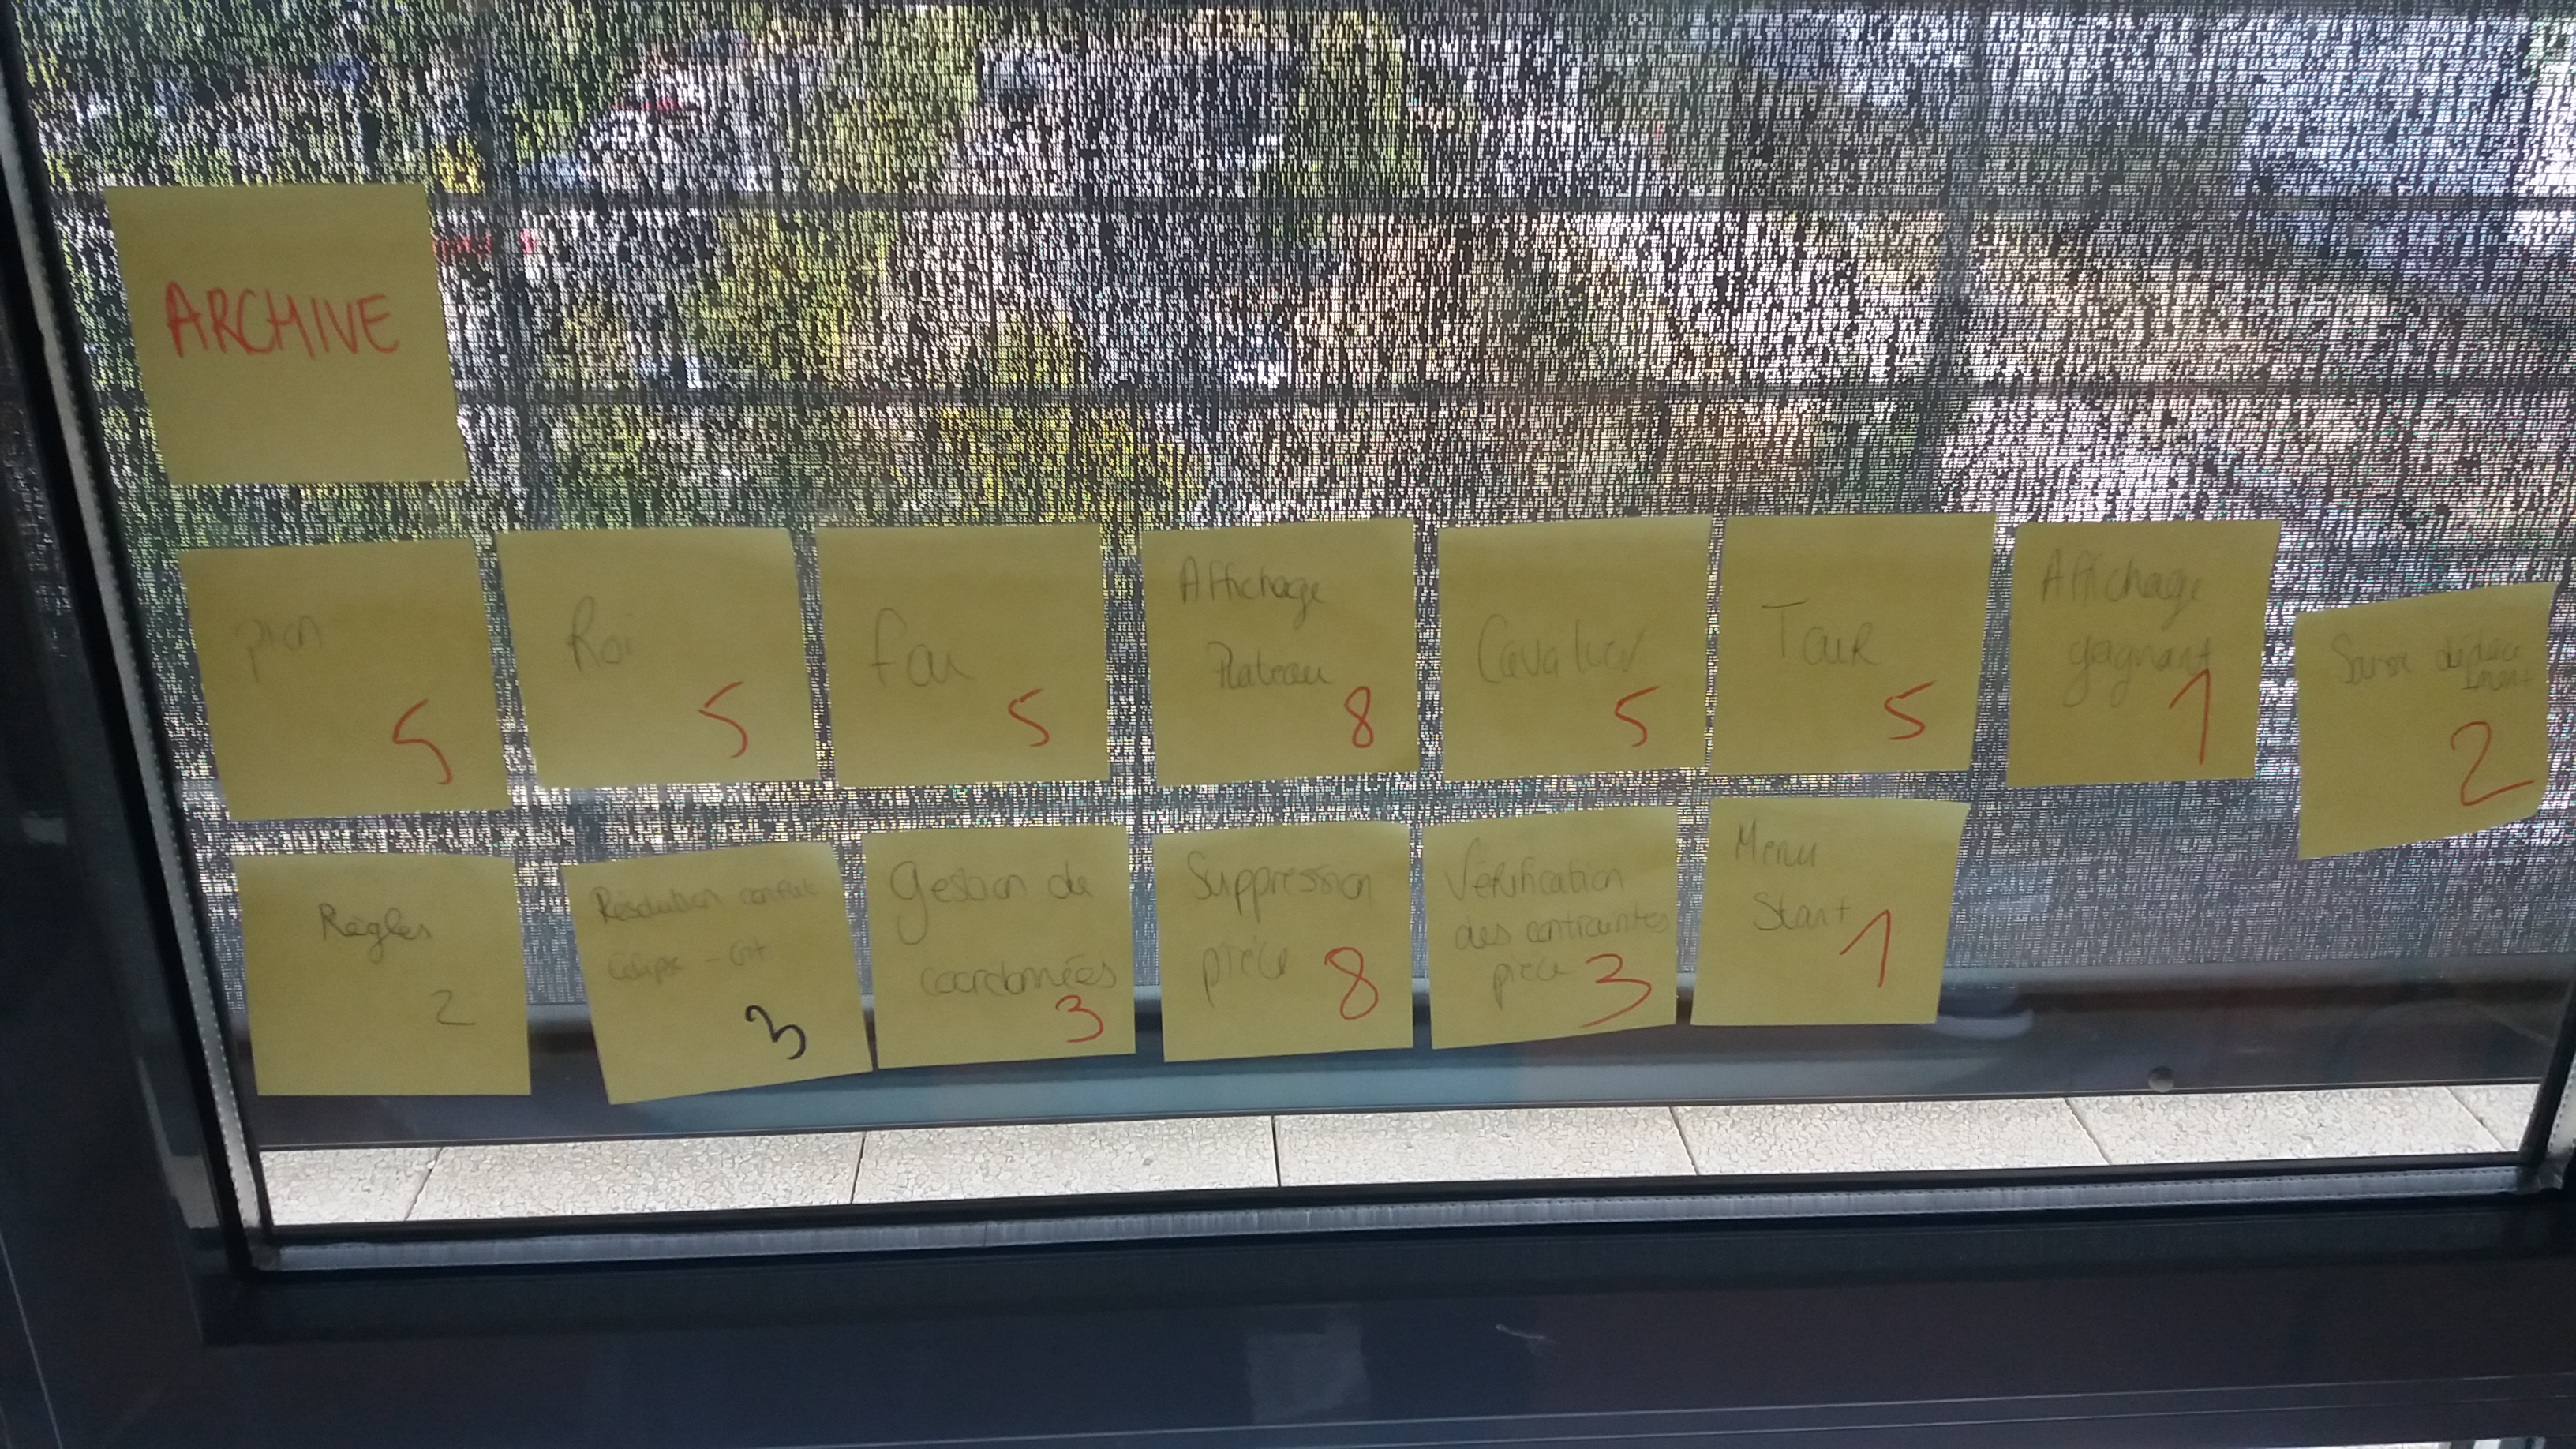 ARCHIVE
pion
5
Roi
5
fou
5
Affichage
Plateau
8
Cavalier
5
Tour
5
Affichage
gagnant
1
déplace
ment
2
Règles
2
Résolution conflit
Eclipse - Git
3
gestion de
coordonnées
3
Suppression
pièce
8
Vérification
des contraintes
pièce
3
Menu
Start
1